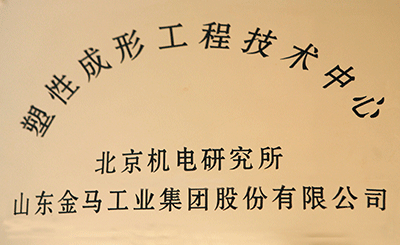 塑性成形工程技术中心
北京机电研究所
山东金马工业集团股份有限公司